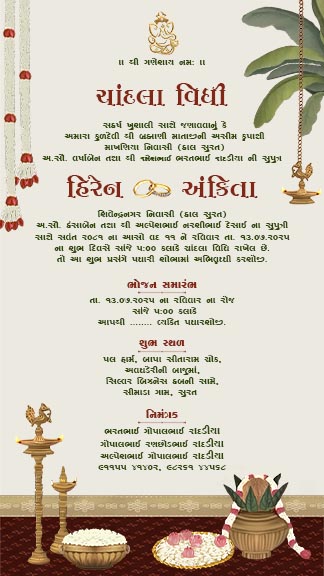 ॥ શ્રી ગણેશાય નમઃ ॥
ચાંદલા વિધી
સહર્ષ ખુશાલી સાથે જણાવવાનું કે
અમારા કુળદેવી શ્રી બ્રહ્માણી માતાજીની અસીમ કૃપાથી
માખણિયા નિવાસી (હાલ સુરત)
અ.સૌ. વર્ષાબેન તથા શ્રી રમેશભાઈ ભરતભાઈ રાદડીયા ની સુપુત્ર
હિરેન અંકિતા
શિવેન્દ્રનગર નિવાસી (હાલ સુરત)
અ.સૌ. હંસાબેન તથા શ્રી અલ્પેશભાઈ નરશીભાઈ દેસાઈ ના સુપુત્રી
સાથે સવંત ૨૦૮૧ ના અષાઢ વદ ૧૧ ને રવિવાર તા. ૧૩.૦૭.૨૦૨૫
ના શુભ દિવસે સાંજે ૫:૦૦ કલાકે ચાંદલા વિધિ રાખેલ છે.
તો આ શુભ પ્રસંગે પધારી શોભામાં અભિવૃધ્ધી કરશોજી.
ભોજન સમારંભ
તા. ૧૩.૦૭.૨૦૨૫ ના રવિવાર ના રોજ
સાંજે ૫:૦૦ કલાકે
આપશ્રી ........ વ્યકિત પધારશોજી.
શુભ સ્થળ
પલ ફાર્મ, બાપા સીતારામ ચોક,
અવધટેરીની બાજુમાં,
સિલ્વર બિઝનેસ હબની સામે,
સીમાડા ગામ, સુરત
નિમંત્રક
ભરતભાઈ ગોપાલભાઈ રાદડીયા
ગોપાલભાઈ રણછોડભાઈ રાદડીયા
અલ્પેશભાઈ ગોપાલભાઈ રાદડીયા
૯૧૧૫૫ ૪૧૪૦૨, ૯૮૨૬૧ ૪૪૫૬૮